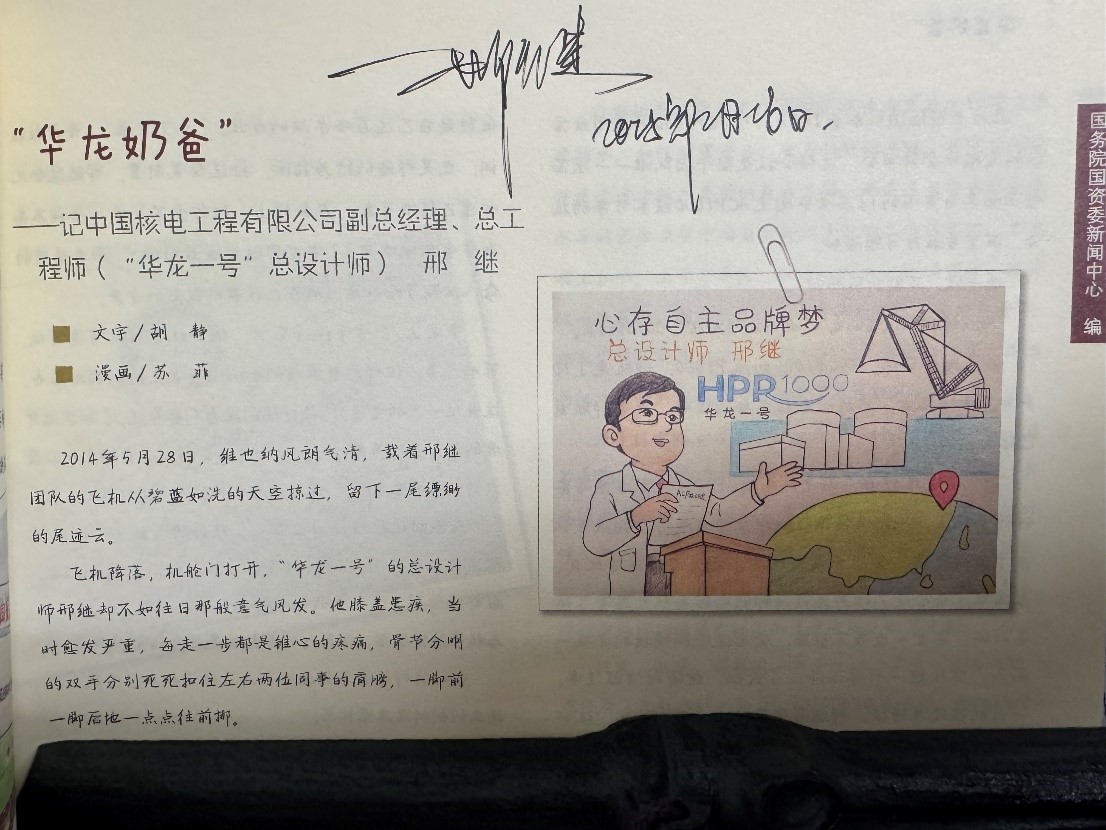 邢继
2025年2月26日.
“华龙奶爸”
——记中国核电工程有限公司副总经理、总工
程师（“华龙一号”总设计师） 邢 继
文字/胡 静
漫画/苏 菲
2014年5月28日，维也纳风朗气清，载着邢继
团队的飞机从碧蓝如洗的天空掠过，留下一尾缥缈
的尾迹云。
飞机降落，机舱门打开，“华龙一号”的总设计
师邢继却不如往日那般意气风发。他膝盖患疾，当
时愈发严重，每走一步都是锥心的疼痛，骨节分明
的双手分别死死扣住左右两位同事的肩膀，一脚前
一脚后地一点点往前挪。
心存自主品牌梦
总设计师 邢继
HPR1000
华龙一号
国务院国资委新闻中心 编